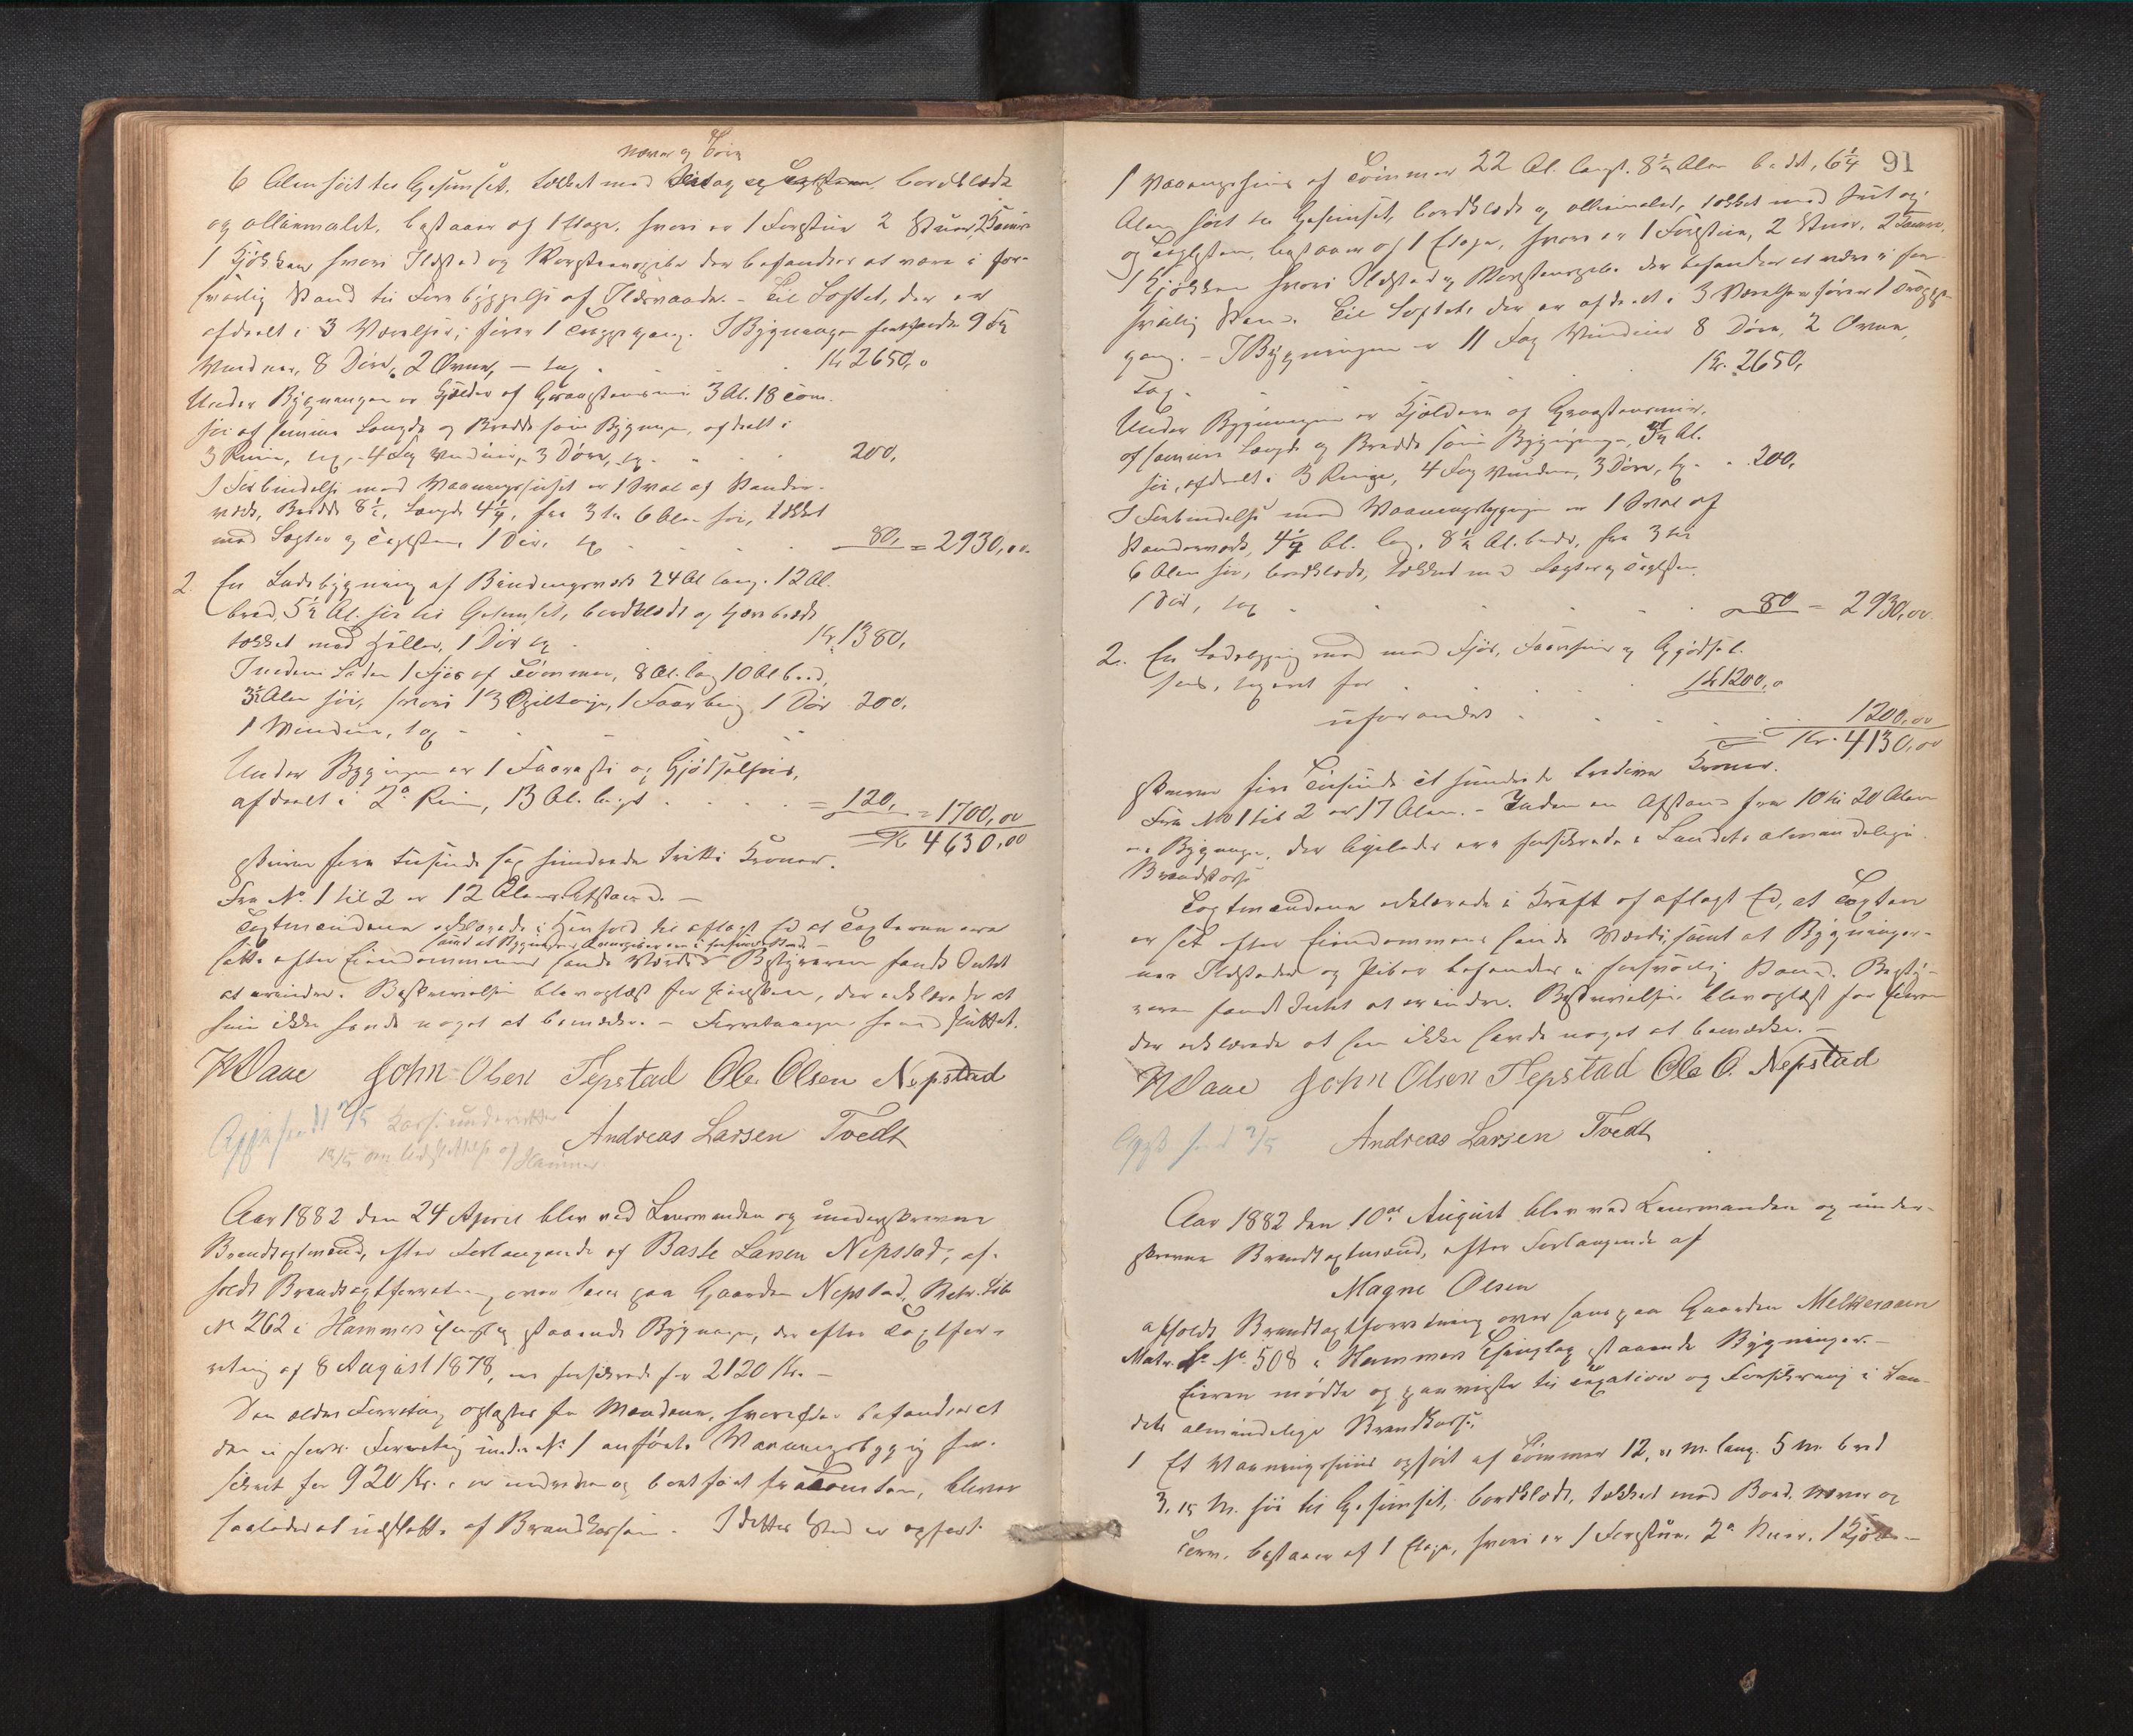 Næver og Torv
6 Alen høit til Gesimset, tækket med og bordklædt
og olliemalet, bestaaer af 1 Etage, hvori er 1 Forstue 2 Stuer, 2 Kamre
1 Kjøkken hvori Ildsted og Skorsteenspibe der befandtes at være i for-
svarlig Stand til Forebyggelse af Ildsvaade. – Til Loftet, der er
afdeelt i 3 Værelser, fører 1 Trappegang. I Bygningen forefandtes 9 Fag
Vinduer, 8 Døre, 2 Ovne, – tax. Kr. 2650,0
Under Bygningen er Kjelder af Graasteensmur 3 Al. 18 Tom.
høi af samme Længde og Bredde som Bygningen, afdeelt i
3 Rum, tax, 4 Fag Vinduer, 3 Døre, tx. 200,
I Forbindelse med Vaaningshuset er 1 Sval af Stander-
værk, Bredde 8½, Længde 4¼, fra 3 til 6 Alen høi, tækket
med Lægter og Teglsteen, 1 Dør, tx 80, = 2930,00.
2. En Ladebygning af Bindingsværk 24 Al lang. 12 Al.
bred, 5½ Al. høi til Gesimset, bordklædt og tjærebrædt
tækket med Heller, 1 Dør tx Kr. 1380,
Indeni Laden 1 Fjøs af Tømmer, 8 Al. lang 10 Al bred,
3½ Alen høi, hvori 13 1 Dør 200,
1 Vindue, tax
Under Bygningen er 1 og Gjødselhus,
afdeelt i 2de Rum, 13 Al. langt = 120, = 1700,00
Kr 4630,00
skriver fire Tusinde sex hundrede tretti Kroner.
Fra No 1 til 2 er 12 Alens Afstand. –
Taxtmændene erklærede i Henhold til aflagt Ed at Taxterne ere
samt at Bygningens Ildsteder ere i forsvarlig Stand –
satte efter Eiendommens sande Værdi. Bestyreren fandt Intet
at erindre. Beskrivelsen blev oplæst for Eieren, der erklærede at
han ikke havde noget at bemærke. – Forretningen hermed sluttet.
John Olsen Tepstad Ole Olsen Nepstad
Andreas Larsen Tvedt
Aar 1882 den 24 April blev ved Lensmanden og underskrevne
Brandtaxtmænd, efter Forlangende af Basse Larsen Nepstad, af-
holdt Brandtaxtforretning over hans paa Gaarden Nepstad, Matr. Løb
No 262 i Hammers Thinglag staaende Bygninger, der efter Taxtfor-
retning af 8 August 1878, er forsikrede for 2120 Kr. –
Den ældre Forretning oplæstes for Mændene, hvorefter befandtes at
den i forr. Forretning under No 1 anførte Vaaningsbygning for-
sikret for 920 Kr. er nedreven og bortført fra Tomten, bliver
saaledes at udslette af Brandkassen. I dettes Sted er opført:
91
1 Vaaningshuus af Tømmer 22 Al. langt. 8½ Alen bredt, 6¼
Alen høit til Gesimset, bordklædt og olliemalet, tækket med
og Teglsteen, bestaaer af 1 Etage, hvori er 1 Forstue, 2 Stuer, 2 Kamre,
1 Kjøkken hvori Ildsted og Skorsteenspibe der befandtes at være i for-
svarlig Stand. Til Loftet, der er afdeelt i 3 Værelser fører 1 Trappe-
gang. – I Bygningen er 11 Fag Vinduer 8 Døre, 2 Ovne,
tax. Kr. 2650,
Under Bygningen er Kjelder af Graasteensmur,
af samme Længde og Bredde som Bygningen, 3½ Al.
høi, afdeelt i 3 Rum, 4 Fag Vinduer, 3 Døre, tx. 200,
I Forbindelse med Vaaningsbygningen er 1 Sval af
Standerværk, 4¼ Al. lang, 8½ Al. bred, fra 3 til
6 Alen høi, bordklædt, tækket med Lægter og Teglsten.
1 Dør, tax 80 = 2930,00.
2. En Ladebygning med Fjøs, og Gjødsel-
huus, taxeret for Kr 1200,0
uforandret 1200,00
Kr. 4130,00
skriver fire Tusinde et hundrede tredive Kroner.
Fra No 1 til 2 er 17 Alen. – Inden en Afstand fra 10 til 20 Alen
er Bygninger, der ligeledes ere forsikrede i Landets almindelige
Brandkasse
Taxtmændene erklærede i Kraft af aflagt Ed, at Taxten
er sat efter Eiendommens sande Værdi, samt at Bygninger-
nes Ildsteder og Piber befandtes i forsvarlig Stand. Besty-
reren fandt Intet at erindre. Beskrivelsen blev oplæst for Eieren
der erklærede at han ikke havde noget at bemærke. –
John Olsen Tepstad Ole O. Nepstad
Andreas Larsen Tvedt
Aar 1882 den 10de August blev ved Lensmanden og under-
skrevne Brandtaxtmænd, efter Forlangende af
Magne Olsen
afholdt Brandtaxtforretning over hans paa Gaarden Melkeraaen
Matr. Lb No 508 i Hammers Thinglag staaende Bygninger. –
Eieren mødte og paaviste til Taxation og Forsikring i Lan-
dets almindelige Brandkasse:
1 Et Vaaningshuus opført af Tømmer m. lang. 5 m. bred
3,15 M. høi til Gesimset, bordklædt, tækket med Bord, Næver og
Torv, bestaaer af 1 Etage, hvori er 1 Forstue, 2de Stuer, 1 Kjøk-